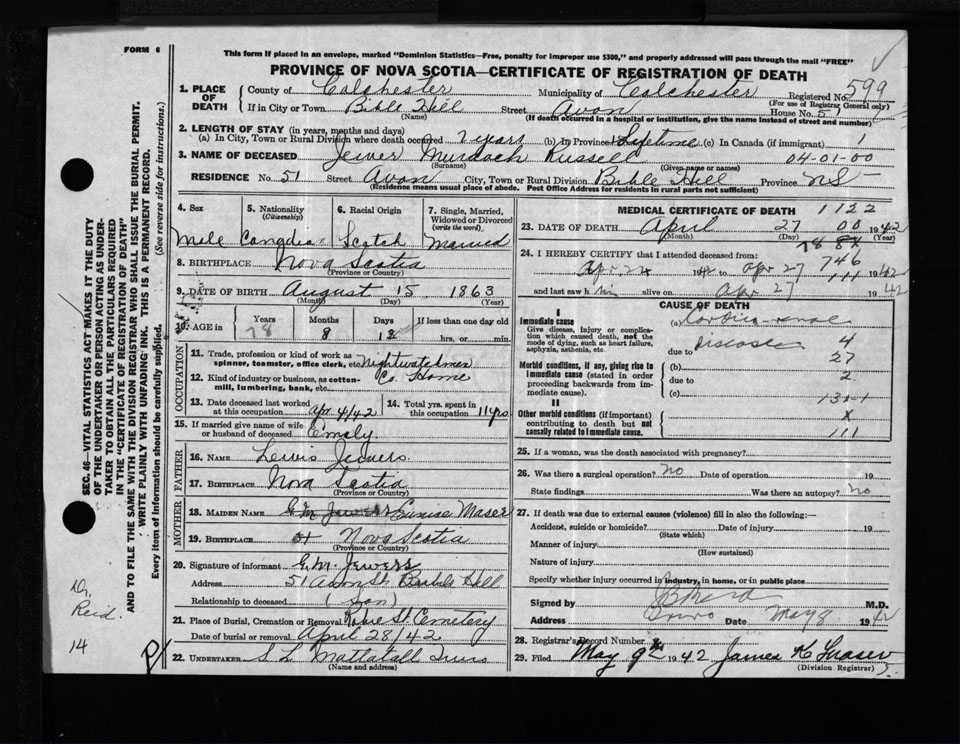 FORM 6
This form if placed in an envelope, marked "Dominion Statistics—Free, penalty for improper use $300," and properly addressed will pass through the mail "FREE"
PROVINCE OF NOVA SCOTIA—CERTIFICATE OF REGISTRATION OF DEATH
1. PLACE OF DEATH County of Colchester Municipality of Colchester Registered No. 599
(For use of Registrar General only)
If in City or Town Bible Hill Street Avon House No. 51
(Name) (If death occurred in a hospital or institution, give the name instead of street and number)
2. LENGTH OF STAY (in years, months and days)
(a) In City, Town or Rural Division where death occurred 2 years (b) in Province Lifetime (c) In Canada (if immigrant) 1
3. NAME OF DECEASED Jewer Murdoch Russell 04-01-00
(Surname) (Given name or names)
RESIDENCE No. 51 Street Avon City, Town or Rural Division Bible Hill Province NS
(Residence means usual place of abode. Post Office Address for residents in rural parts not sufficient)
4. Sex 5. Nationality (Citizenship) 6. Racial Origin 7. Single, Married, Widowed or Divorced (write the word)
Male Canadia Scotch Married
8. BIRTHPLACE Nova Scotia
(Province or Country)
9. DATE OF BIRTH August 15 1863
(Month) (Day) (Year)
10. AGE in Years Months Days If less than one day old
78 8 12 hrs. or min.
OCCUPATION
11. Trade, profession or kind of work as spinner, teamster, office clerk, etc. Nightwatchman
12. Kind of industry or business, as cotton-mill, lumbering, bank, etc. Co. Home
13. Date deceased last worked at this occupation Apr 4/42 14. Total yrs. spent in this occupation 11 yrs
15. If married give name of wife or husband of deceased Emily
FATHER
16. NAME Lewis Jewers
17. BIRTHPLACE Nova Scotia
(Province or Country)
MOTHER
18. MAIDEN NAME G.M. Jewers Eunise Maser
19. BIRTHPLACE 51 Nova Scotia
(Province or Country)
20. Signature of informant G.M. Jewers
Address 51 Avon St. Bible Hill
Relationship to deceased (Son)
21. Place of Burial, Cremation or Removal Robie St. Cemetery
Date of burial or removal April 28/42
22. UNDERTAKER S L Mattatall Truro
(Name and address)
MEDICAL CERTIFICATE OF DEATH 1122
23. DATE OF DEATH April 27 00 1942
(Month) (Day) (Year)
78 8x
24. I HEREBY CERTIFY that I attended deceased from: 746
Apr 24 1942 to Apr 27 111 1942
and last saw h im alive on Apr 27 1942
CAUSE OF DEATH
I
Immediate cause (a) Cardiio-renal
Give disease, injury or complication which caused death, not the mode of dying, such as heart failure, asphyxia, asthenia, etc. due to Disease 4
27
Morbid conditions, if any, giving rise to immediate cause (stated in order proceeding backwards from immediate cause). (b)
due to 2
(c) 131-1
II
Other morbid conditions (if important) contributing to death but not causally related to immediate cause. x
111
25. If a woman, was the death associated with pregnancy?
26. Was there a surgical operation? No Date of operation 19
State findings Was there an autopsy? no
27. If death was due to external causes (violence) fill in also the following:—
Accident, suicide or homicide? Date of injury 19
(State which)
Manner of injury
(How sustained)
Nature of injury
Specify whether injury occurred in industry, in home, or in public place
Signed by M.D.
Address Truro Date May 8 1942
28. Registrar's Record Number
29. Filed May 9th 1942 James K Fraser
(Division Registrar)
SEC. 46—VITAL STATISTICS ACT MAKES IT THE DUTY OF THE UNDERTAKER OR PERSON ACTING AS UNDERTAKER TO OBTAIN ALL THE PARTICULARS REQUIRED IN THE "CERTIFICATE OF REGISTRATION OF DEATH" AND TO FILE THE SAME WITH THE DIVISION REGISTRAR WHO SHALL ISSUE THE BURIAL PERMIT.
WRITE PLAINLY WITH UNFADING INK. THIS IS A PERMANENT RECORD.
Every item of information should be carefully supplied. (See reverse side for instructions.)
Dr. Reid
14